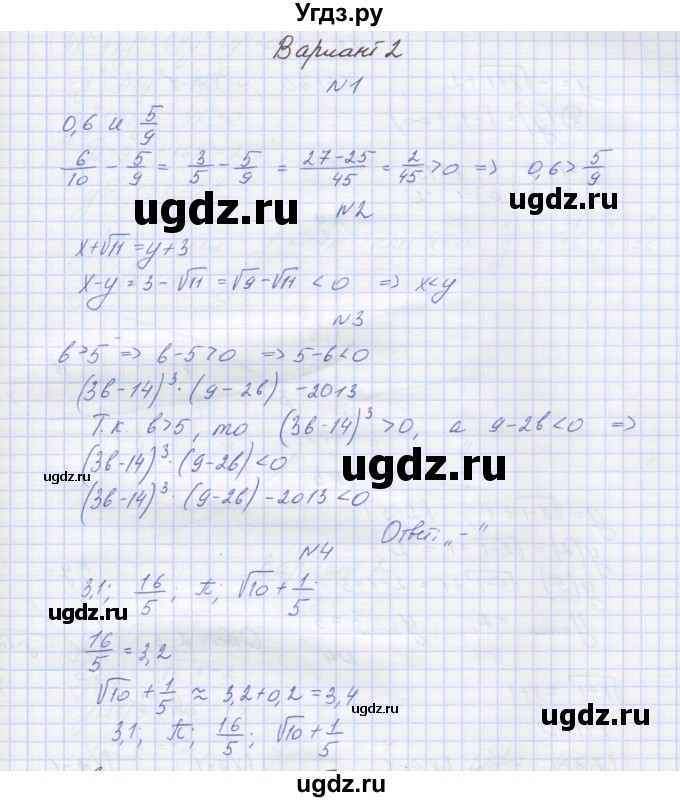 Угдз.ру
Вариант 2
N1
0,6 и 5/9
6/10 - 5/9 = 3/5 - 5/9 = (27-25)/45 = 2/45 > 0 => 0,6 > 5/9
ugdz.ru
ugdz.ru
N2
x+√11 = y+3
x-y = 3-√11 = √9-√11 < 0 => x<y
N3
b>5 => b-5>0 => 5-b<0
(3b-14)³·(9-2b) -2013
Т.к. b>5, то (3b-14)³>0, а 9-2b<0 =>
(3b-14)³·(9-2b)<0
ugdz.ru
ugdz.ru
(3b-14)³·(9-2b)-2013<0
Ответ: „-"
N4
3,1; 16/5; π; √10+1/5
ugdz.ru
ugdz.ru
16/5 = 3,2
√10+1/5 ≈ 3,2+0,2 = 3,4
ugdz.ru
ugdz.ru
3,1; π; 16/5; √10+1/5
ugdz.ru
ugdz.ru
Угдз.ру